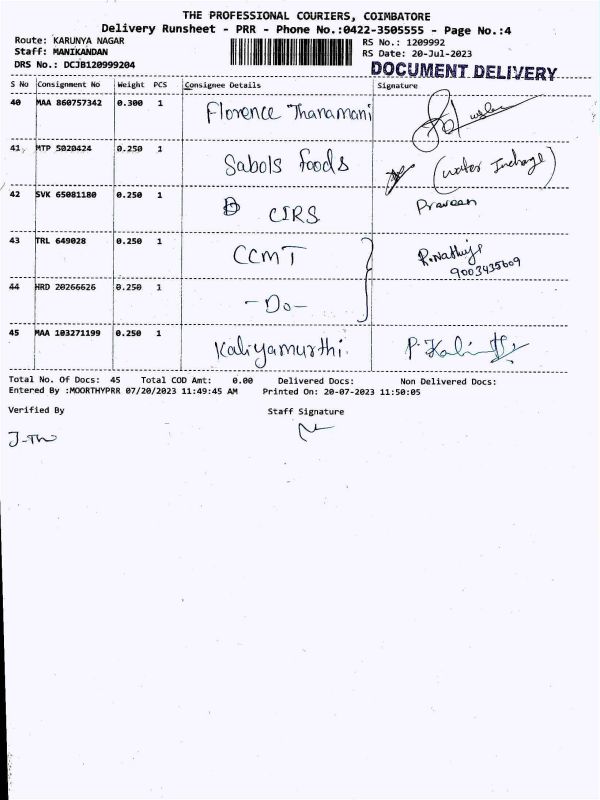 THE PROFESSIONAL COURIERS, COIMBATORE
Delivery Runsheet - PRR - Phone No.:0422-3505555 - Page No.:4
Route: KARUNYA NAGAR RS No.: 1209992
Staff: MANIKANDAN RS Date: 20-Jul-2023
DRS No.: DCJB120999204 DOCUMENT DELIVERY
S No Consignment No Weight PCS Consignee Details Signature
40 MAA 860757342 0.300 1 Florence Thanamani
41 MTP 5020424 0.250 1 Sabols foods (water Incharge)
42 SVK 65081180 0.250 1 CIRS Praveen
43 TRL 649028 0.250 1 CCMT
9003435609
44 HRD 20266626 0.250 1 -Do-
45 MAA 103271199 0.250 1 Kaliyamurthi.
Total No. Of Docs: 45 Total COD Amt: 0.00 Delivered Docs: Non Delivered Docs:
Entered By :MOORTHYPRR 07/20/2023 11:49:45 AM Printed On: 20-07-2023 11:50:05
Verified By Staff Signature